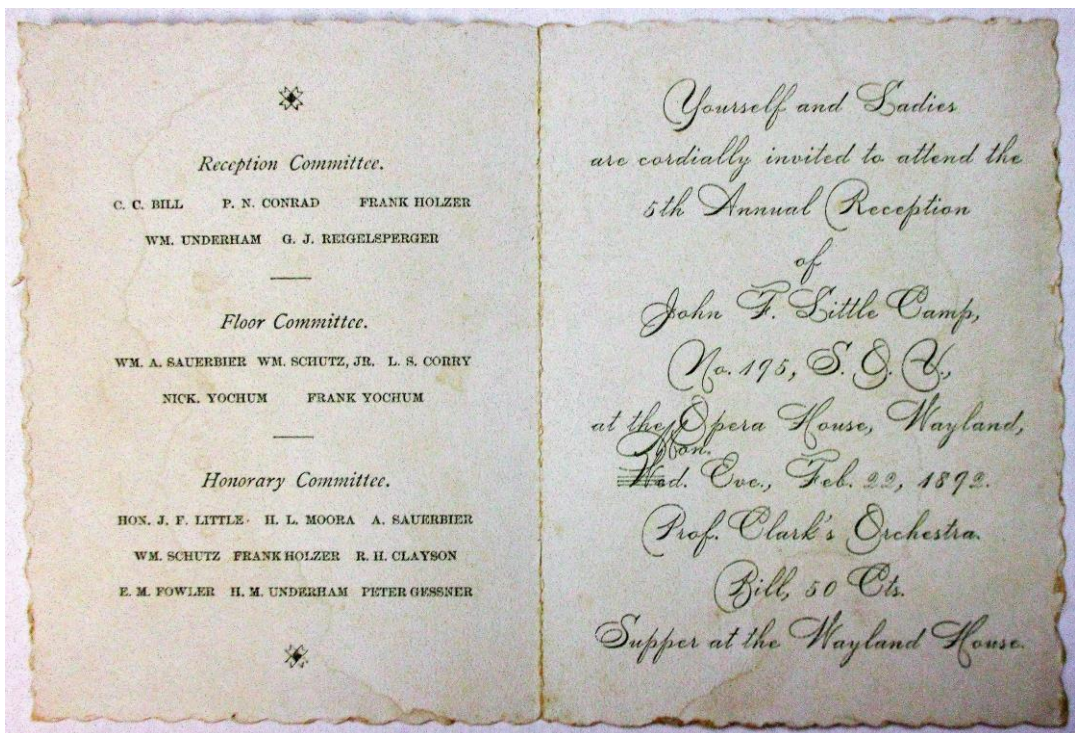 Reception Committee.
C. C. BILL P. N. CONRAD FRANK HOLZER
WM. UNDERHAM G. J. REIGELSPERGER
Floor Committee.
WM. A. SAUERBIER WM. SCHUTZ, JR. L. S. CORRY
NICK. YOCHUM FRANK YOCHUM
Honorary Committee.
HON. J. F. LITTLE H. L. MOORA A. SAUERBIER
WM. SCHUTZ FRANK HOLZER R. H. CLAYSON
E. M. FOWLER H. M. UNDERHAM PETER GESSNER
Yourself and Ladies
are cordially invited to attend the
5th Annual Reception
of
John F. Little Camp,
No. 195, S. O. V.,
at the Opera House, Wayland,
Mon.
Wed. Eve., Feb. 22, 1892.
Prof. Clark's Orchestra.
Bill, 50 Cts.
Supper at the Wayland House.